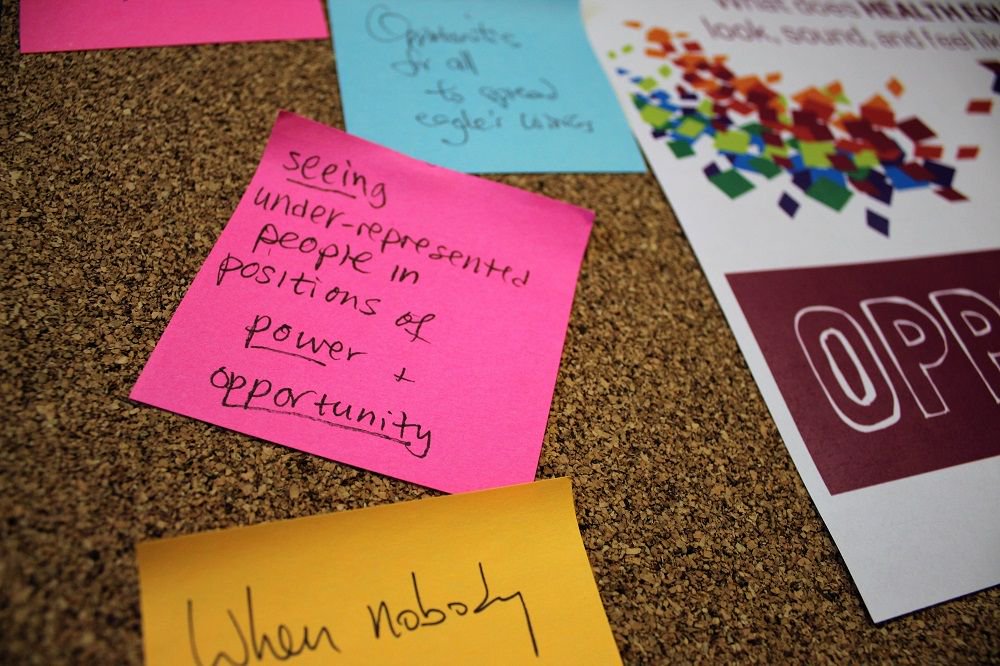 Opportunities
for all
to spread
eagle's wings
What does HEALTH EQU
look, sound, and feel lik
seeing
under-represented
people in
positions of
power +
opportunity
OPP
When nobody